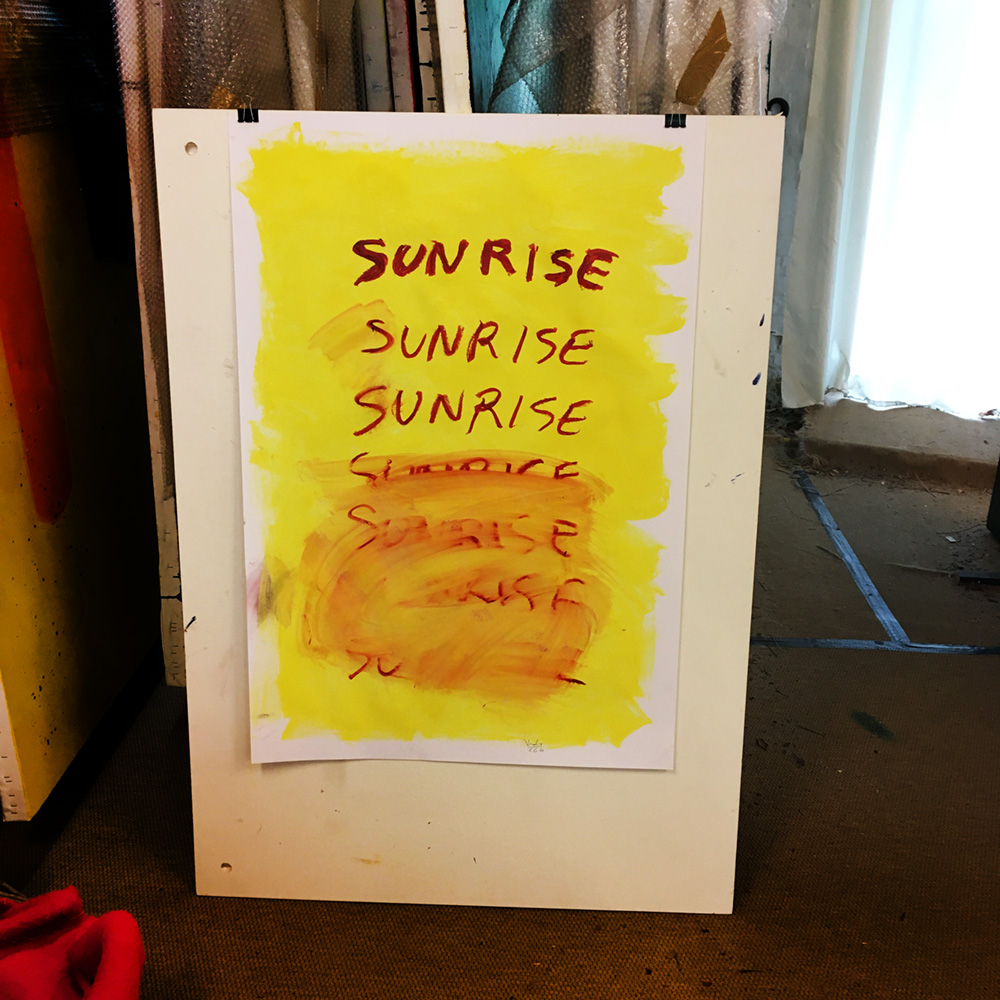 SUNRISE
SUNRISE
SUNRISE
SUNRISE
SUNRISE
RISE
SU